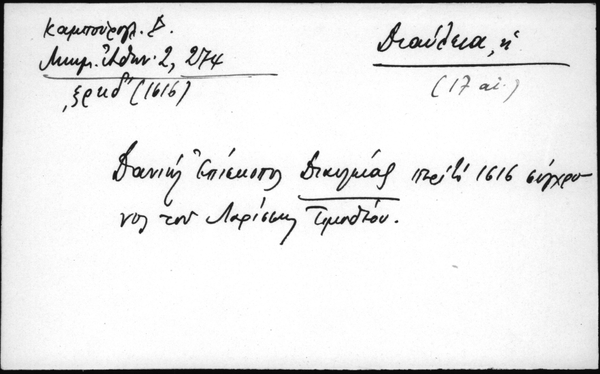 Καμπούρογλ. Δ.
Μνημ. Ἀθην. 2, 274
͵ζρκδʹ (1616)
Διαύλεια, ἡ
(17 αἰ.)
Δανιήλ Ἐπίσκοπος Διαυλείας περὶ τό 1616 σύγχρο
νος τοῦ Λαρίσσης Τιμοθέου.